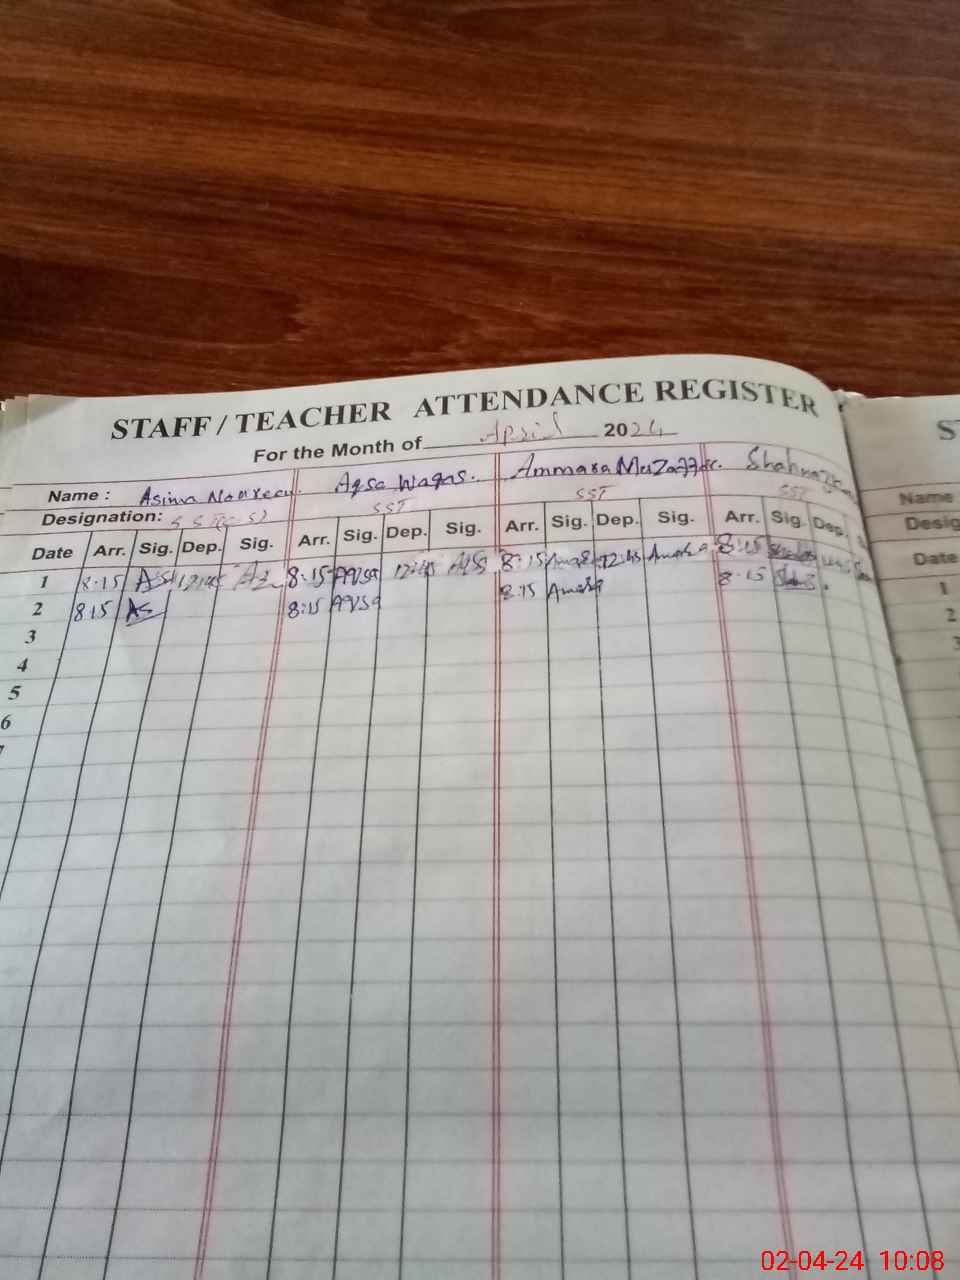 STAFF / TEACHER ATTENDANCE REGISTER
S
For the Month of April 2024
Name : Asima Aqsa Waqas. Ammara
Name
Designation: SST SST SST
Desig
Date Arr. Sig. Dep. Sig. Arr. Sig. Dep. Sig. Arr. Sig. Dep. Sig. Arr. Sig. Dep.
Date
1 8:15 12:45 8:15 AQSA 12:45 8:15 12:45 8:15
1
2 8:15 As 8:15 AQSA 8:15 8:15
2
3
3
4
5
6
7
02-04-24 10:08